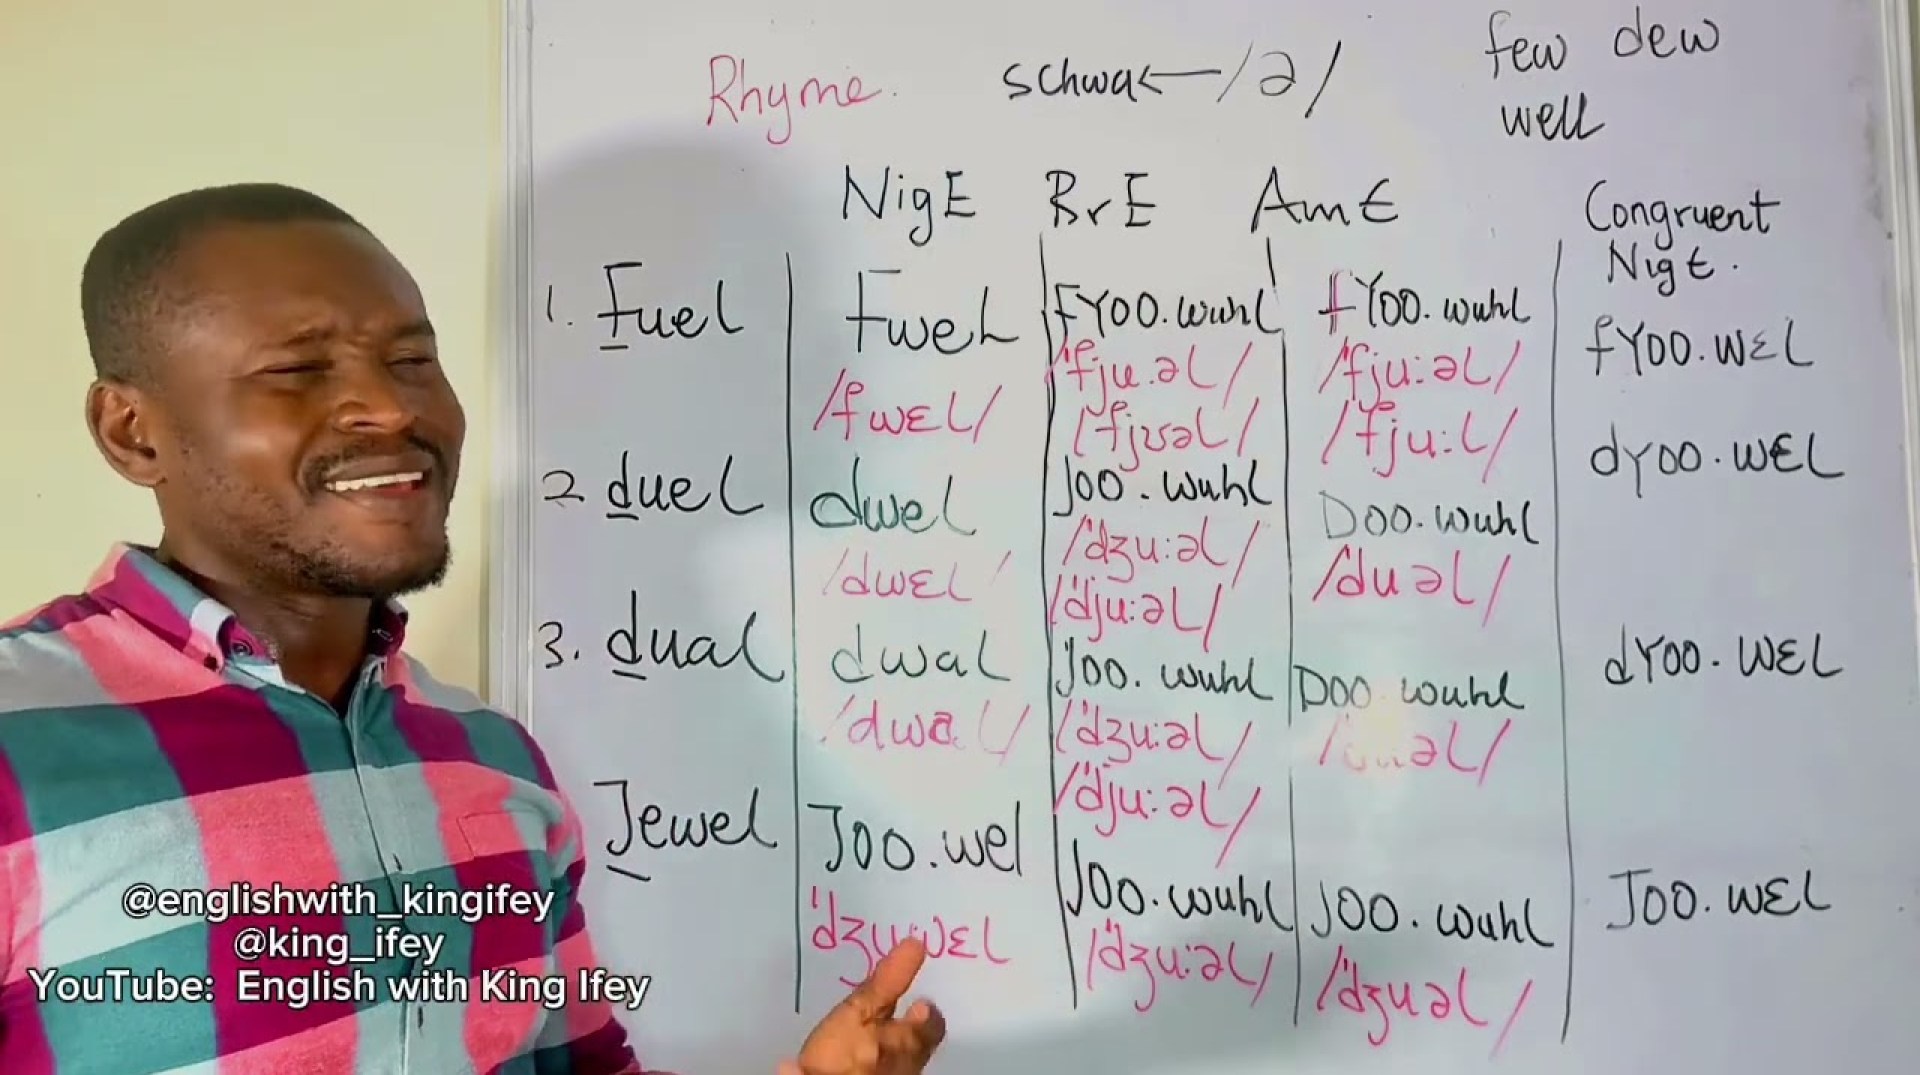 Rhyme. schwa ← /ə/ few dew
well
NigE BrE AmE Congruent
NigE.
1. Fuel Fwel FYOO.wuhl fYOO.wuhl fYOO.wɛl
/fwɛl/ /ˈfju.əl/ /ˈfju:əl/
/fjʊəl/ /fju:l/
2. duel dwel JOO.wuhl DOO.wuhl dYOO.wɛl
/dwɛl/ /ˈdʒu:əl/ /ˈduəl/
/ˈdju:əl/
3. dual dwal JOO.wuhl DOO.wuhl dYOO.wɛl
/dwal/ /ˈdʒu:əl/ əl/
/ˈdju:əl/
Jewel JOO.wel JOO.wuhl JOO.wuhl JOO.wɛl
ˈdʒuwɛl /ˈdʒu:əl/ /ˈdʒuəl/
@englishwith_kingifey
@king_ifey
YouTube: English with King Ifey